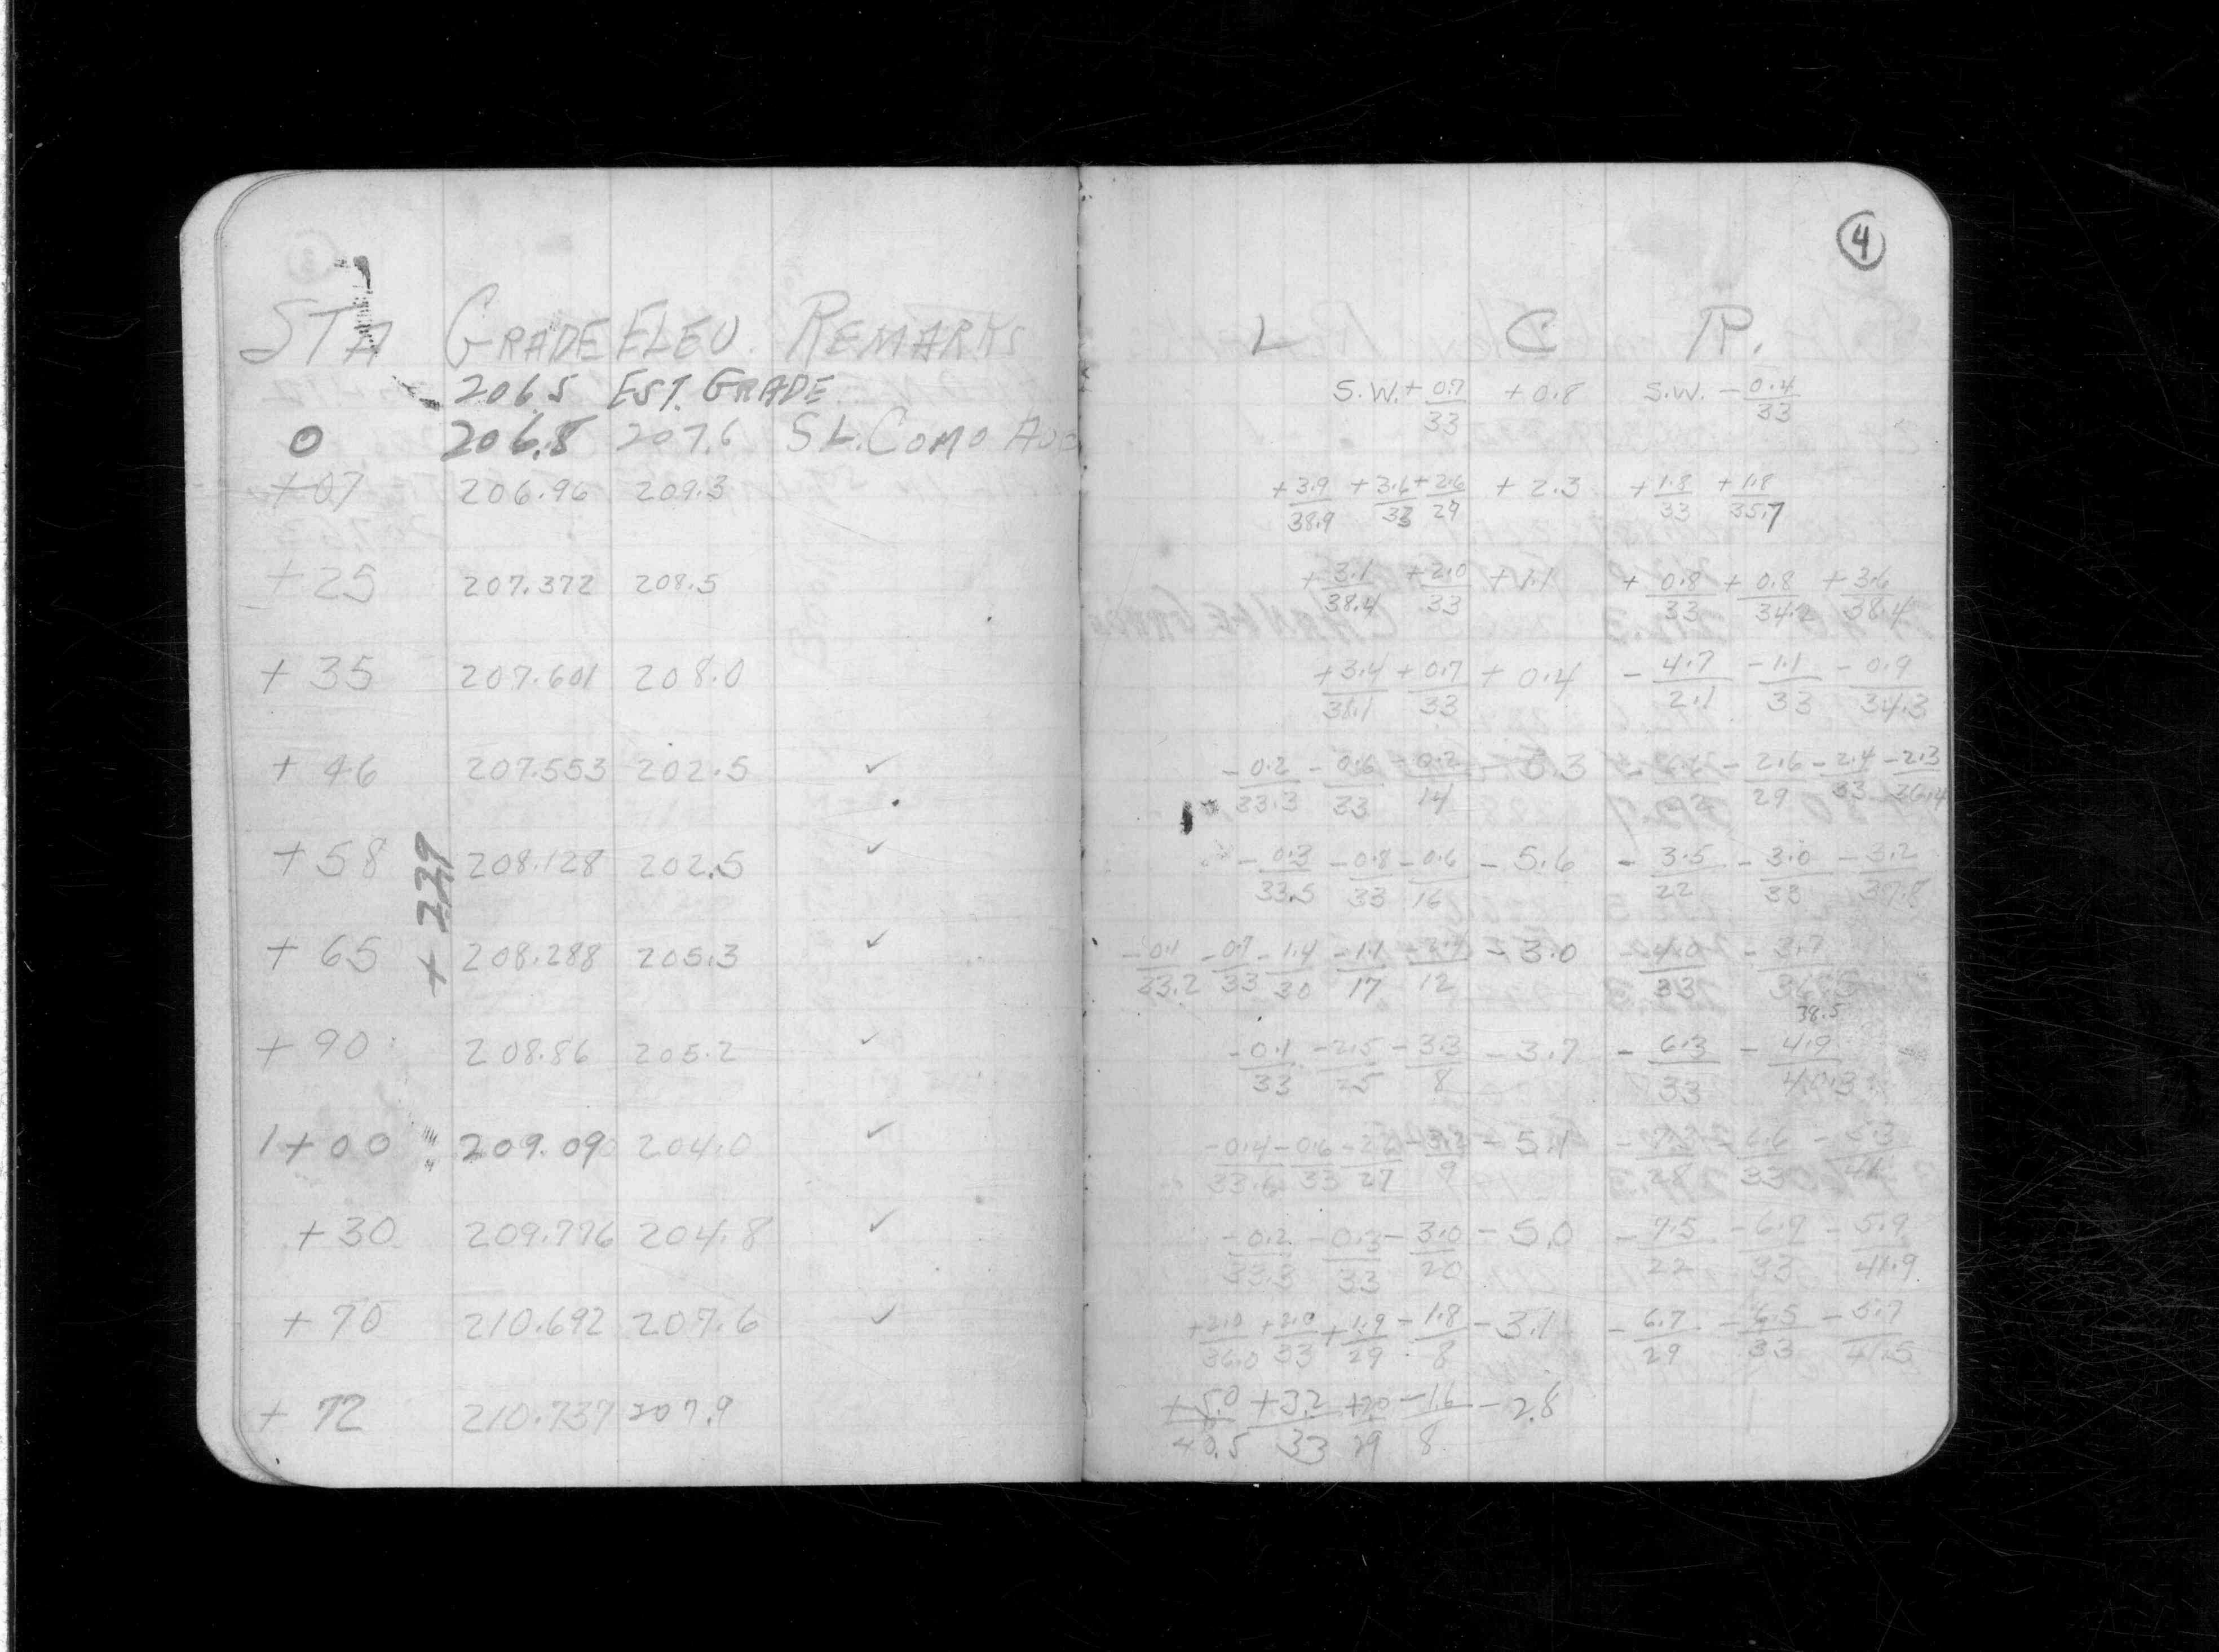 4
STA GRADE ELEV. REMARKS L C R.
206.5 EST. GRADE
0 206.8 207.6 S L. COMO AVE S.W. + 0.7/33 + 0.8 S.W. - 0.4/33
+ 07 206.96 209.3 + 3.9/38.9 + 3.6/33 + 2.6/29 + 2.3 + 1.8/33 + 1.8/35.7
+ 25 207.372 208.5 + 3.1/38.4 + 2.0/33 + 1.1 + 0.8/33 + 0.8/34.2 + 3.6/38.4
+ 35 207.601 208.0 + 3.4/38.1 + 0.7/33 + 0.4 - 4.7/2.1 - 1.1/33 - 0.9/34.3
+ 46 207.553 202.5 ✓ - 0.2/33.3 - 0.6/33 - 0.2/14 - 5.3 - 2.6/29 - 2.4/33 - 2.3/36.4
+ 58 208.128 202.5 ✓ - 0.3/33.5 - 0.8/33 - 0.6/16 - 5.6 - 3.5/22 - 3.0/33 - 3.2/37.8
+ .229
+ 65 208.288 205.3 ✓ - 0.1/33.2 - 0.7/33 - 1.4/30 - 1.1/17 - 2.4/12 - 3.0 - 4.0/33 - 3.7
38.5
+ 90 208.86 205.2 ✓ - 0.1/33 - 2.5/25 - 3.3/8 - 3.7 - 6.3/33 - 4.9/40.3
1 + 00 209.090 204.0 ✓ - 0.4/33.6 - 0.6/33 - 2.2/27 - 3.2/9 - 5.1 - 7.2/28 - 6.6/33 - 5.3/41
+ 30 209.776 204.8 ✓ - 0.2/33.3 - 0.3/33 - 3.0/20 - 5.0 - 7.5/22 - 6.9/33 - 5.9/41.9
+ 70 210.692 207.6 ✓ + 2.0/36.0 + 2.0/33 + 1.9/29 - 1.8/8 - 3.1 - 6.7/29 - 6.5/33 - 5.7/41.5
+ 72 210.737 207.9 + 5.0/40.5 + 3.2/33 + 2.0/29 - 1.6/8 - 2.8